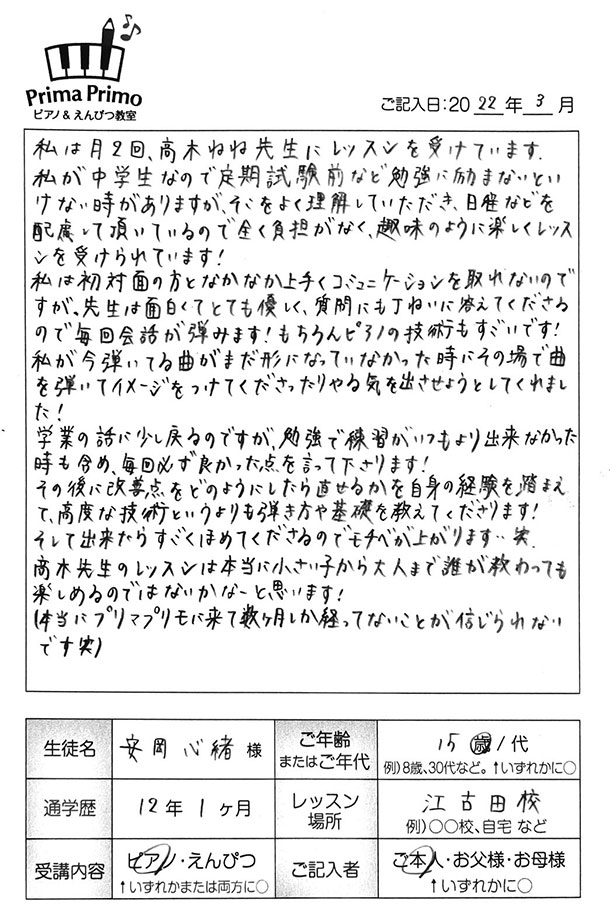 Prima Primo
ピアノ&えんぴつ教室
ご記入日:2022年3月
私は月2回、高木ねね先生にレッスンを受けています.
私が中学生なので定期試験前など勉強に励まないとい
けない時がありますが、そこをよく理解していただき、日程などを
配慮して頂いているので全く負担がなく、趣味のように楽しくレッス
ンを受けられています!
私は初対面の方となかなか上手くコミュニケーションを取れないので
すが、先生は面白くてとても優しく、質問にも丁ねいに答えてくださる
ので毎回会話が弾みます!もちろんピアノの技術もすごいです!
私が今弾いてる曲がまだ形になっていなかった時にその場で曲
を弾いてイメージをつけてくださったりやる気を出させようとしてくれまし
た!
学業の話に少し戻るのですが、勉強で練習がいつもより出来なかった
時も含め、毎回必ず良かった点を言って下さります!
その後に改善点をどのようにしたら直せるかを自身の経験を踏まえ
て、高度な技術というよりも弾き方や基礎を教えてくださります!
そして出来たらすごくほめてくださるのでモチベが上がります‥笑.
高木先生のレッスンは本当に小さい子から大人まで誰が教わっても
楽しめるのではないかなーと思います!
(本当にプリマプリモに来て数ヶ月しか経ってないことが信じられない
です笑)
生徒名 安岡心緒様 ご年齢またはご年代 15歳/代
例)8歳、30代など。↑いずれかに○
通学歴 12年1ヶ月 レッスン場所 江古田校
例)○○校、自宅 など
受講内容 ピアノ・えんぴつ ご記入者 ご本人・お父様・お母様
↑いずれかまたは両方に○ ↑いずれかに○